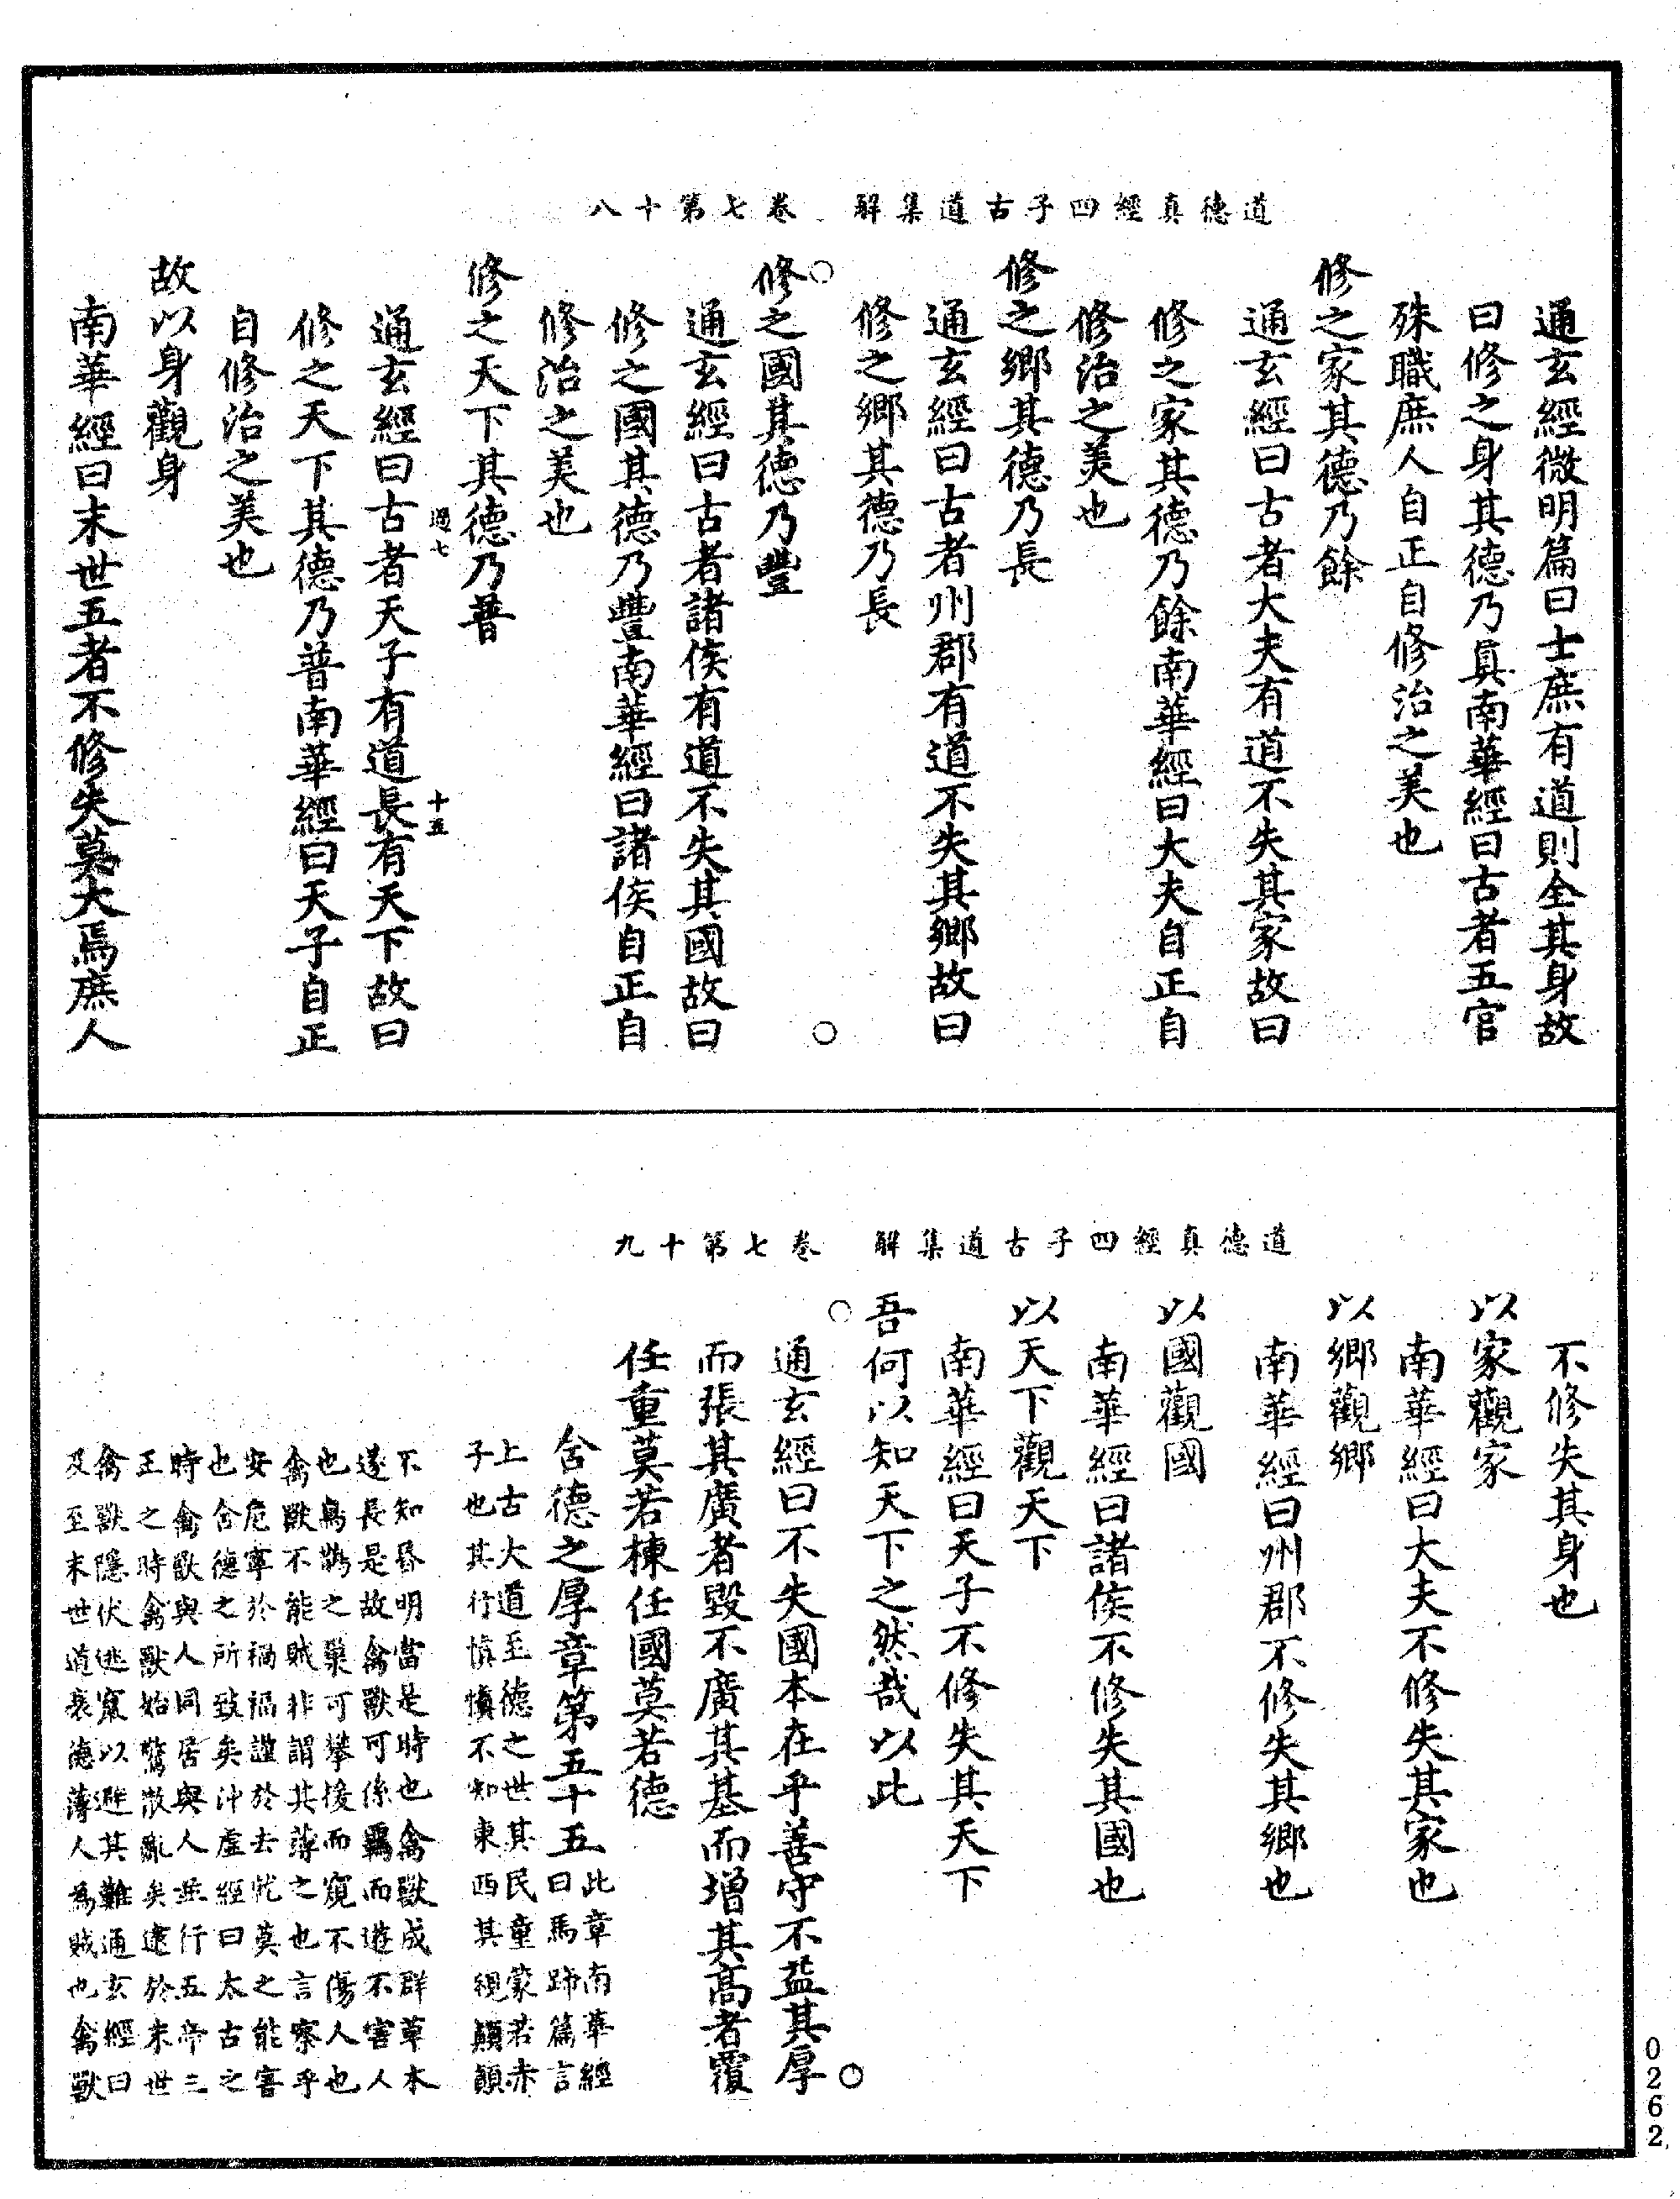 道德真經四子古道集解　卷七第十八
通玄經微明篇曰士庶有道則全其身故
曰修之身其德乃真南華經曰古者五官
殊職庶人自正自修治之美也
修之家其德乃餘
通玄經曰古者大夫有道不失其家故曰
修之家其德乃餘南華經曰大夫自正自
修治之美也
修之鄉其德乃長
通玄經曰古者州郡有道不失其鄉故曰
修之鄉其德乃長
○　○
修之國其德乃豐
通玄經曰古者諸侯有道不失其國故曰
修之國其德乃豐南華經曰諸侯自正自
修治之美也
修之天下其德乃普
過七　十五
通玄經曰古者天子有道長有天下故曰
修之天下其德乃普南華經曰天子自正
自修治之美也
故以身觀身
南華經曰末世五者不修失莫大焉庶人
道德真經四子古道集解　卷七第十九
不修失其身也
以家觀家
南華經曰大夫不修失其家也
以鄉觀鄉
南華經曰州郡不修失其鄉也
以國觀國
南華經曰諸侯不修失其國也
以天下觀天下
南華經曰天子不修失其天下
吾何以知天下之然哉以此
○　○
通玄經曰不失國本在乎善守不益其厚
而張其廣者毀不廣其基而增其高者覆
任重莫若棟任國莫若德
含德之厚章第五十五
此章南華經
曰馬蹄篇言
上古大道至德之世其民童蒙若赤
子也其行慎慎不知東西其視顛顛
不知昏明當是時也禽獸成群草木
遂長是故禽獸可係羈而遊不害人
也烏鵲之巢可攀援而窺不傷人也
禽獸不能賊非謂其薄之也言察乎
安危寧於禍福謹於去就莫之能害
也含德之所致矣沖虛經曰太古之
時禽獸與人同居與人並行五帝三
正之時禽獸始驚散亂矣逮於末世
禽獸隱伏逃竄以避其難通玄經曰
及至末世道衰德薄人為賊也禽獸
0262